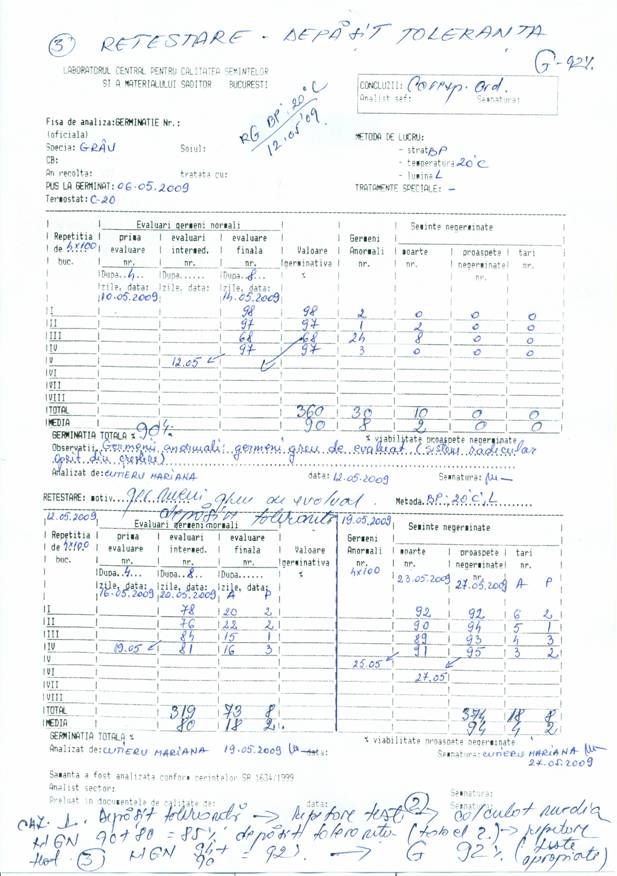 3 RETESTARE - DEPĂȘIT TOLERANȚA
G-92%
LABORATORUL CENTRAL PENTRU CALITATEA SEMINTELOR
SI A MATERIALULUI SADITOR BUCURESTI
CONCLUZII: Coresp. ord.
Analist sef: Semnatura:
RG BP: 20°C
12.05'09.
Fisa de analiza:GERMINATIE Nr.:
(oficiala)
Specia: GRÂU Soiul:
CB:
An recolta: tratata cu:
PUS LA GERMINAT: 06.05.2009
Termostat: C-20
METODA DE LUCRU:
- strat BP
- temperatura 20°C
- lumina L
TRATAMENTE SPECIALE: -
Evaluari germeni normali Seminte negerminate
Repetitia prima evaluari evaluare Germeni
de 4x100 evaluare intermed. finala Valoare Anormali moarte proaspete tari
buc. nr. nr. nr. germinativa nr. nr. negerminate nr.
Dupa..4.. Dupa...... Dupa..8.. % nr.
zile, data: zile, data: zile, data:
10.05.2009 14.05.2009
I 98 98 2 0 0 0
II 97 97 1 2 0 0
III 68 68 24 8 0 0
IV 97 97 3 0 0 0
V 12.05
VI
VII
VIII
TOTAL 360 30 10 0 0
MEDIA 90 8 2 0 0
GERMINATIA TOTALA % 90%. % viabilitate proaspete negerminate
Observatii Germenii anormali: germeni greu de evaluat (sistem radicular
oprit din crestere)
Analizat de: CUTIERU MARIANA data: 12.05.2009 Semnatura:
RETESTARE: motiv germeni greu de evaluat. Metoda. BP; 20°C, L
depășit toleranta
12.05.2009 Evaluari germeni normali 19.05.2009 Seminte negerminate
Repetitia prima evaluari evaluare Germeni
de 4x100 evaluare intermed. finala Valoare Anormali moarte proaspete tari
buc. nr. nr. nr. germinativa nr. nr. negerminate nr.
Dupa..4... Dupa..8.. Dupa...... % 4x100 23.05.2009 nr. A P
zile, data: zile, data: zile, data: 27.05.2009
16.05.2009 20.05.2009 A P
I 78 20 2 92 92 6 2
II 76 22 2 90 94 5 1
III 84 15 1 89 93 4 3
IV 19.05 81 16 3 91 95 3 2
V 25.05
VI 27.05
VII
VIII
TOTAL 319 73 8 374 18 8
MEDIA 80 18 2. 94 4 2
GERMINATIA TOTALA % % viabilitate proaspete negerminate
Analizat de: CUTIERU MARIANA 19.05.2009 data: Semnatura: CUTIERU MARIANA
27.05.2009
Samanta a fost analizata conform cerintelor SR 1634/1999
Analist sector: Semnatura:
Preluat in documentele de calitate de: data: Semnatura:
CAZ. 1. Depășit toleranță → repetare test 2 → calculat media
MGN 90+80 = 85% depășit toleranta (tabel 2.) → repetare
test 3 MGN 94+ 90 = 92% → G 92% (teste apropiate)